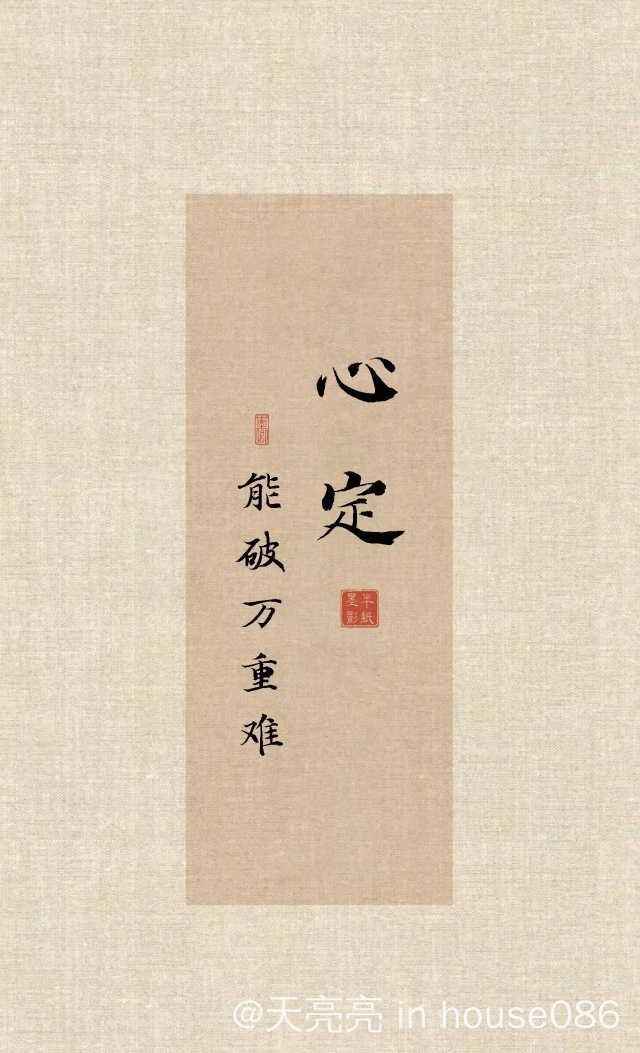 心定
半纸
墨影
能破万重难
@天亮亮 in house086